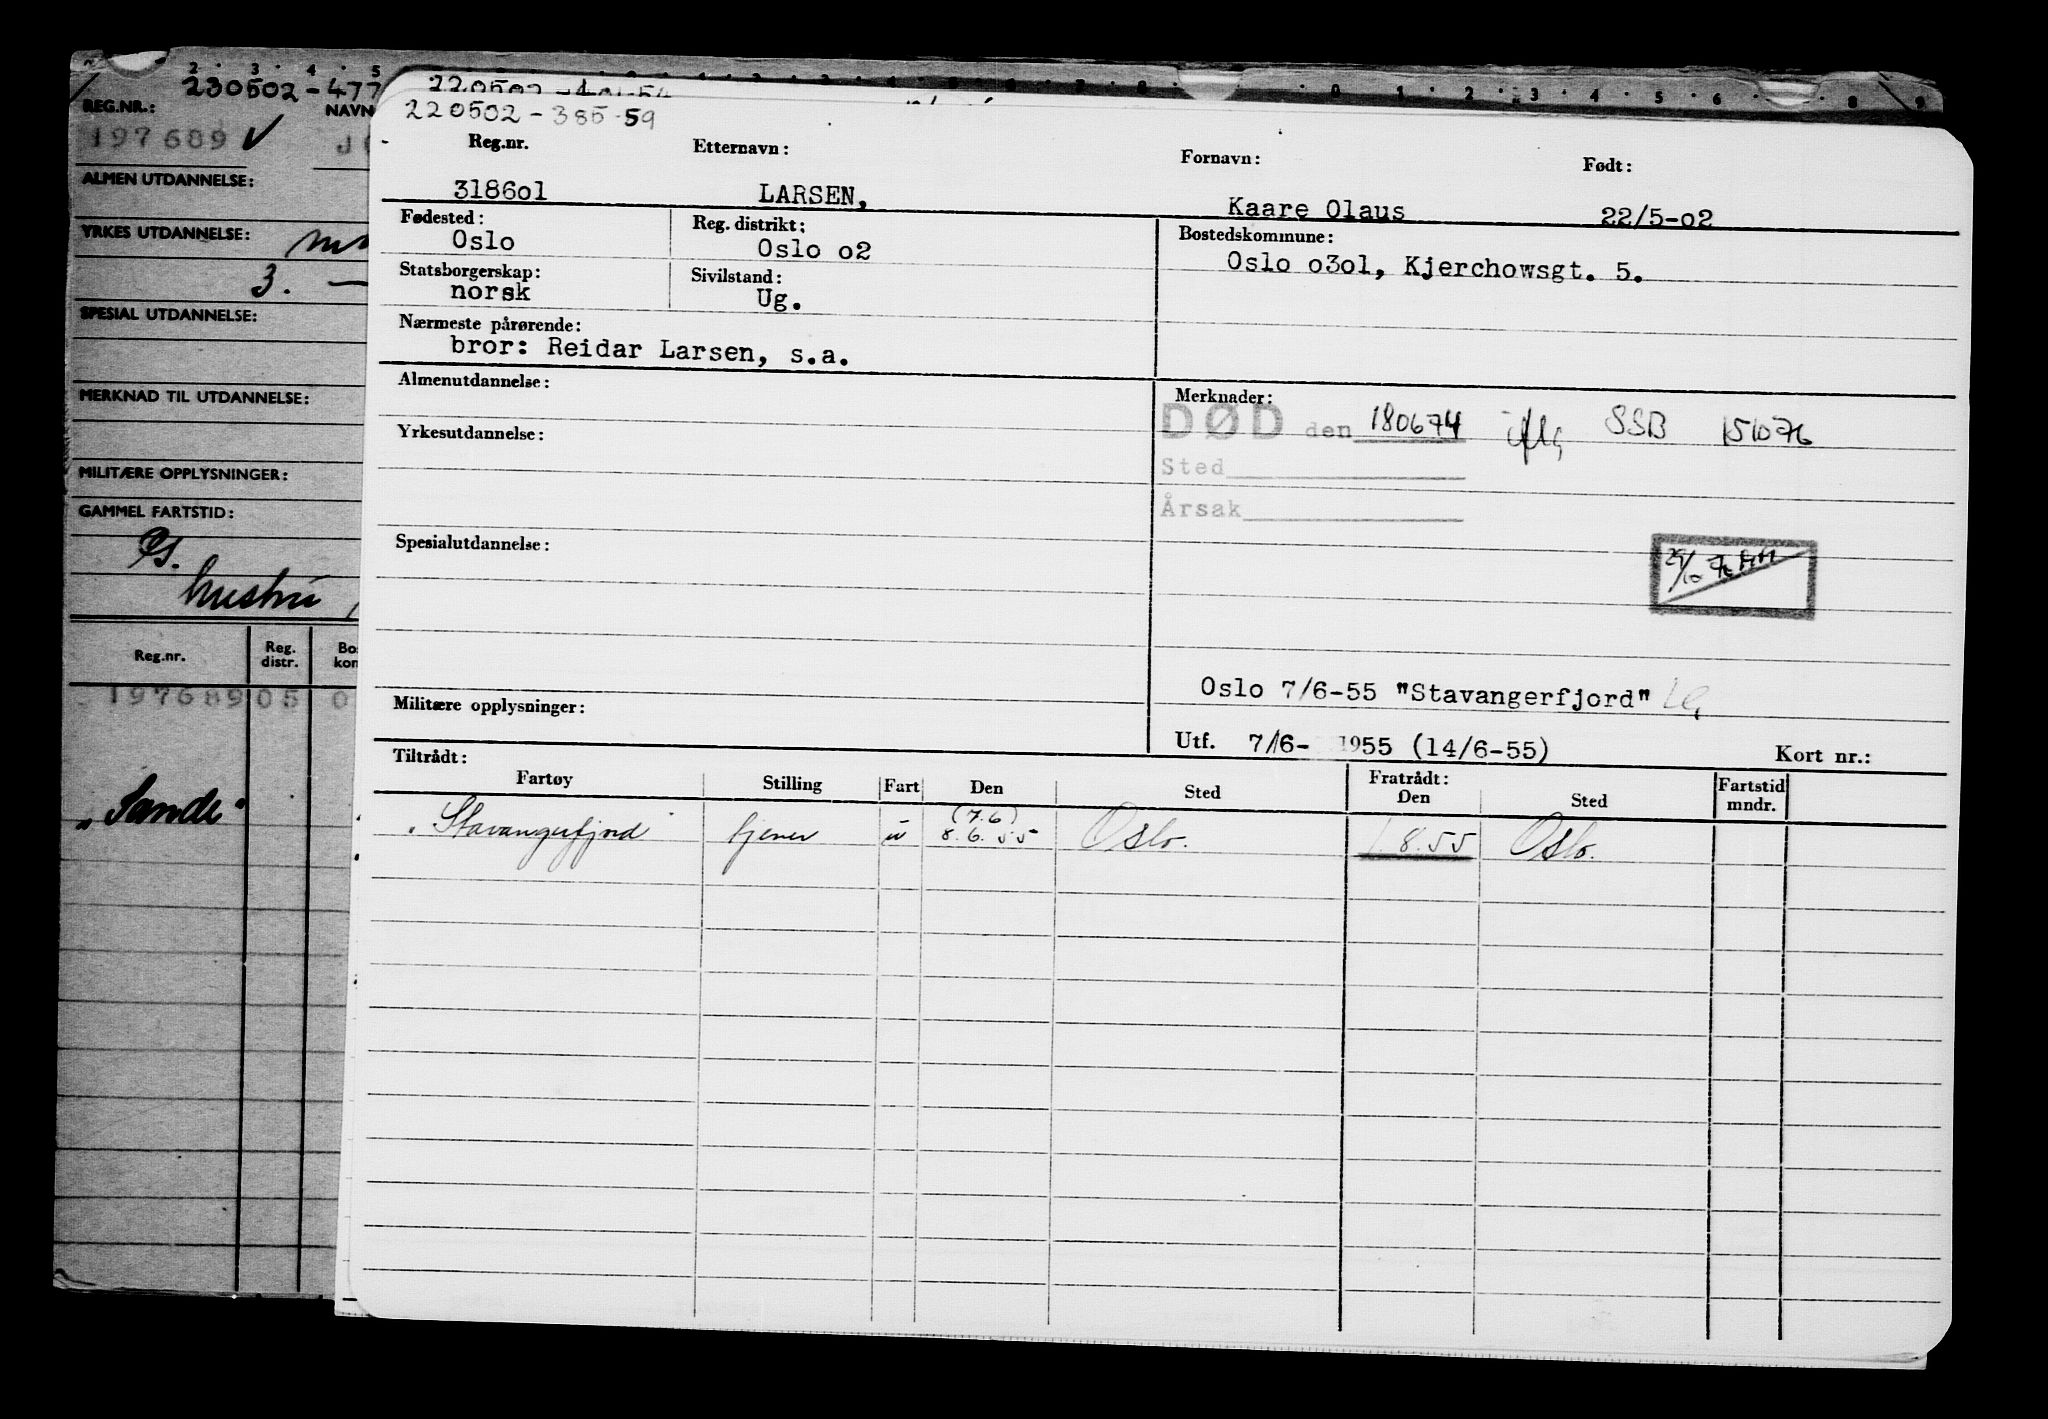 2 3 4 5 6 7 8 0 1 2 3 4 5 6 8 9
230502-477
REG.NR.: NAVN
197689 ✓
ALMEN UTDANNELSE:
YRKES UTDANNELSE:
3. —
SPESIAL UTDANNELSE:
MERKNAD TIL UTDANNELSE:
MILITÆRE OPPLYSNINGER:
GAMMEL FARTSTID:
hustru
Reg.nr. Reg. distr.
197689 05 0
"Sande"
220502-385-59
Reg.nr. Etternavn: Fornavn: Født:
3186o1 LARSEN, Kaare Olaus 22/5-o2
Fødested: Reg. distrikt: Bostedskommune:
Oslo Oslo o2 Oslo o3o1, Kjerchowsgt. 5.
Statsborgerskap: Sivilstand:
norsk Ug.
Nærmeste pårørende:
bror: Reidar Larsen, s.a.
Almenutdannelse: Merknader:
DØD den 180674 iflg SSB 151076
Yrkesutdannelse:
Sted
Årsak
Spesialutdannelse:
Oslo 7/6-55 "Stavangerfjord"
Militære opplysninger:
Utf. 7/6- 1955 (14/6-55) Kort nr.:
Tiltrådt: Fratrådt:
Fartøy Stilling Fart Den Sted Den Sted Fartstid mndr.
(7.6)
"Stavangerfjord" tjener u 8.6.55 Oslo. 1.8.55 Oslo.